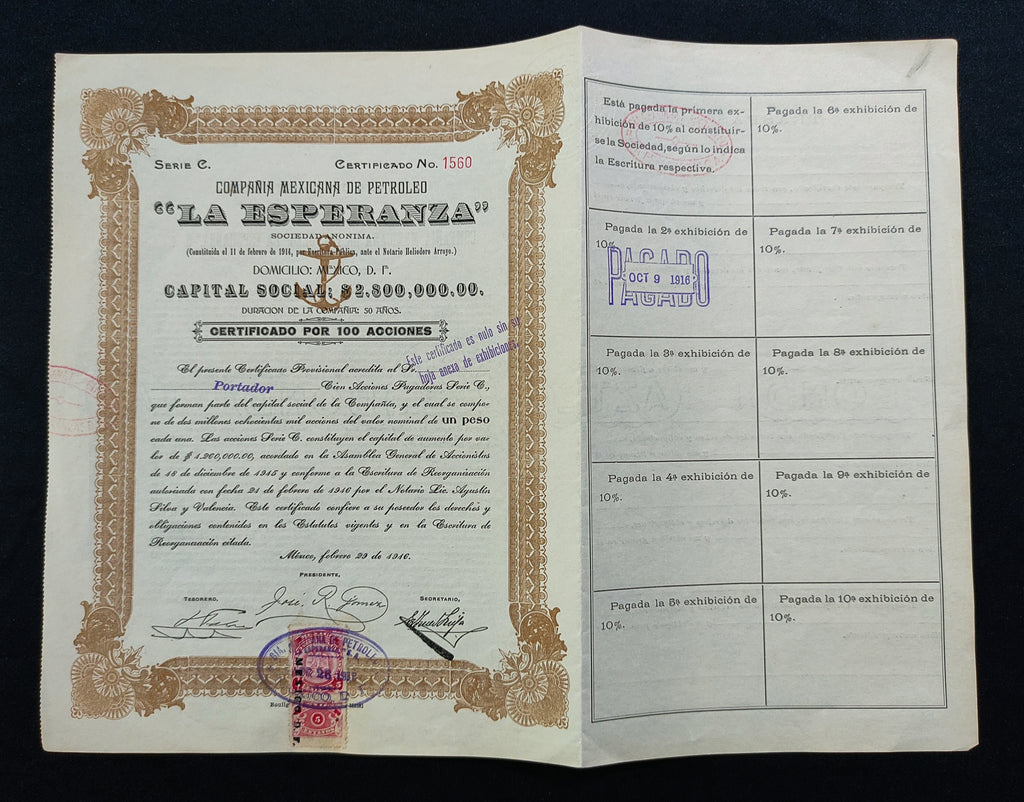 SERIE C. CERTIFICADO No. 1560
COMPAÑIA MEXICANA DE PETROLEO
“LA ESPERANZA”
SOCIEDAD ANONIMA.
(Constituida el 11 de febrero de 1914, por Escritura Pública, ante el Notario Heliodoro Arroyo.)
DOMICILIO: MEXICO, D. F.
CAPITAL SOCIAL: $2.800,000.00.
DURACION DE LA COMPAÑIA: 50 AÑOS.
CERTIFICADO POR 100 ACCIONES
Este certificado es nulo sin su
hoja anexa de exhibiciones.
El presente Certificado Provisional acredita al Sr.
Portador Cien Acciones Pagadoras Serie C.,
que forman parte del capital social de la Compañía, y el cual se compo-
ne de dos millones ochocientas mil acciones del valor nominal de un peso
cada una. Las acciones Serie C. constituyen el capital de aumento por va-
lor de $ 1.200,000.00, acordado en la Asamblea General de Accionistas
de 18 de diciembre de 1915 y conforme a la Escritura de Reorganización
autorizada con fecha 21 de febrero de 1916 por el Notario Lic. Agustín
Silva y Valencia. Este certificado confiere a su poseedor los derechos y
obligaciones contenidos en los Estatutos vigentes y en la Escritura de
Reorganización citada.
México, febrero 29 de 1916.
PRESIDENTE,
José R. Gómez
TESORERO, SECRETARIO,
CIA. MEXICANA DE PETROLEO
ESPERANZA S.A.
5
Está pagada la primera ex-
hibición de 10% al constituir-
se la Sociedad, según lo indica
la Escritura respectiva.
Pagada la 2ª exhibición de
10%.
PAGADO
OCT 9 1916
PAGADO
Pagada la 3ª exhibición de
10%.
Pagada la 4ª exhibición de
10%.
Pagada la 5ª exhibición de
10%.
Pagada la 6ª exhibición de
10%.
Pagada la 7ª exhibición de
10%.
Pagada la 8ª exhibición de
10%.
Pagada la 9ª exhibición de
10%.
Pagada la 10ª exhibición de
10%.